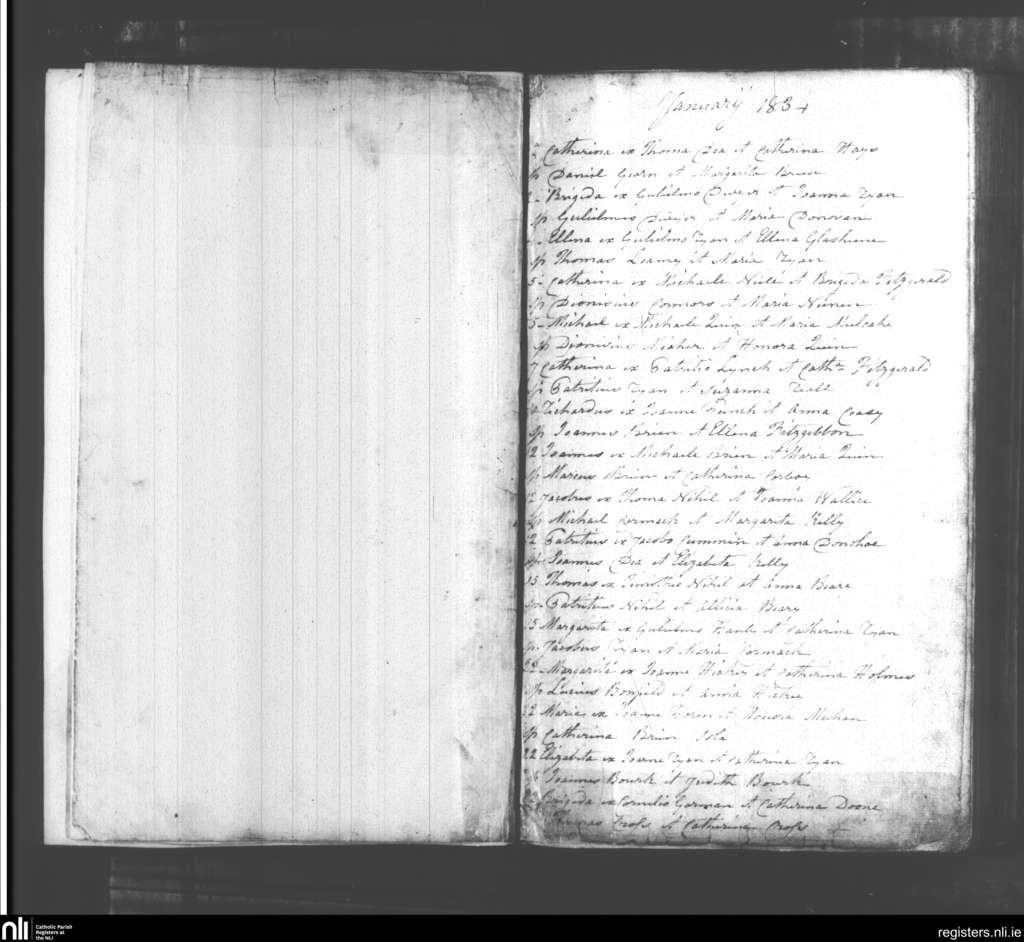 January 1834
Catherina ex Thoma Dea et Catherina Hays
sp Daniel et Margarita Brien
Brigida ex Gulielmo Dwyer et Joanna Ryan
sp Gulielmus Dwyer et Maria Donovan
Ellena ex Gulielmo Ryan et Ellena Glasheene
sp Thomas Leamy et Maria Ryan
5 Catherina ex Michaele et Brigida Fitzgerald
sp Dionisius Connors et Maria
5 Michael ex Michaele Quin et Maria Mulcahe
sp Dionisius Meaher et Honora Quin
7 Catherina ex Patritio Lynch et Cath:a Fitzgerald
sp Patritius Ryan et Suzanna
Richardus ex Joanne et Anna Casey
sp Joannes Brien et Ellena Fitzgibbon
12 Joannes ex Michaele Brien et Maria Quin
sp Marcus Brien et Catherina Corboy
12 Jacobus ex Thoma Nihil et Joanna Wallice
sp Michael Cormack et Margarita Kelly
12 Patritius ex Jacobo Cummin et Anna Donohoe
sp Joannes Dea et Elizabeta Kelly
15 Thomas ex Timotheo Nihil et Anna Beary
sp Patritius Nihil et Allicia Beary
15 Margarita ex Gulielmo et Catherina Ryan
sp Jacobus Ryan et Maria Cormack
22 Margarita ex Joanne Hickey et Catherina Holmes
sp Lucius Bonfield et Anna Hickey
22 Maria ex Joanne et Honora Meehan
sp Catherina Brien Sola
22 Elizabeta ex Joanne Ryan et Catherina Ryan
sp Joannes Bourk et Judith Bourk
Brigida ex Cornelio Gorman et Catherina Doone
Thomas Cross et Catherina Cross
nli Catholic Parish Registers at the NLI
registers.nli.ie